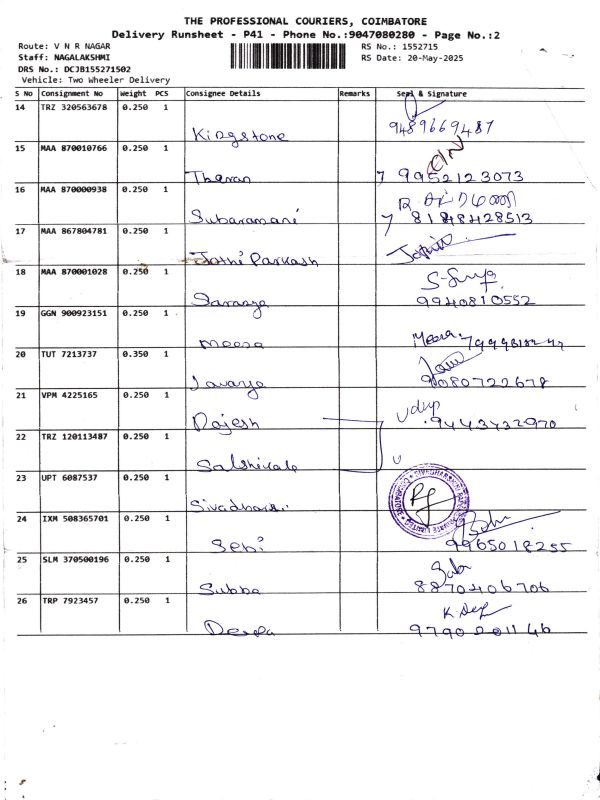 THE PROFESSIONAL COURIERS, COIMBATORE
Delivery Runsheet - P41 - Phone No.:9047080280 - Page No.:2
Route: V N R NAGAR
RS No.: 1552715
Staff: NAGALAKSHMI
RS Date: 20-May-2025
DRS No.: DCJB155271502
Vehicle: Two Wheeler Delivery
S No Consignment No Weight PCS Consignee Details Remarks Seal & Signature
14 TRZ 320563678 0.250 1
Kingstone 9489669487
15 MAA 870010766 0.250 1
Tharan 7 9952123073
16 MAA 870000938 0.250 1
Subaramani 7 8148428513
17 MAA 867804781 0.250 1
Jothi Parkash
18 MAA 870001028 0.250 1
Saranya 9940810552
19 GGN 900923151 0.250 1
Meera Meera
20 TUT 7213737 0.350 1
Lavanya 9080722678
21 VPM 4225165 0.250 1
Rajesh Udup 9443732970
22 TRZ 120113487 0.250 1
23 UPT 6087537 0.250 1
Sivadharsi
24 IXM 508365701 0.250 1
Sebi 9965018255
25 SLM 370500196 0.250 1
Subba 8870406706
26 TRP 7923457 0.250 1
Deepa 9790201146